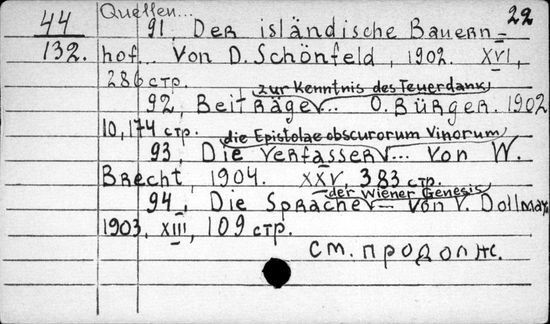 Quellen... 22
44 91, Der isländische Bauern=
132. hof. Von D. Schönfeld, 1902. XVI,
286 стр.
zur Kenntnis des Teuerdank
92, Beiträge... O. Bürger. 1902
10, 174 стр.
die Epistolae obscurorum Vinorum
93, Die Verfasser... Von W.
Brecht, 1904. XXV 383 стр.
der Wiener Genesis
94, Die Sprache — Von V. Dollmayr
1903, XIII, 109 стр.
см. продолж.